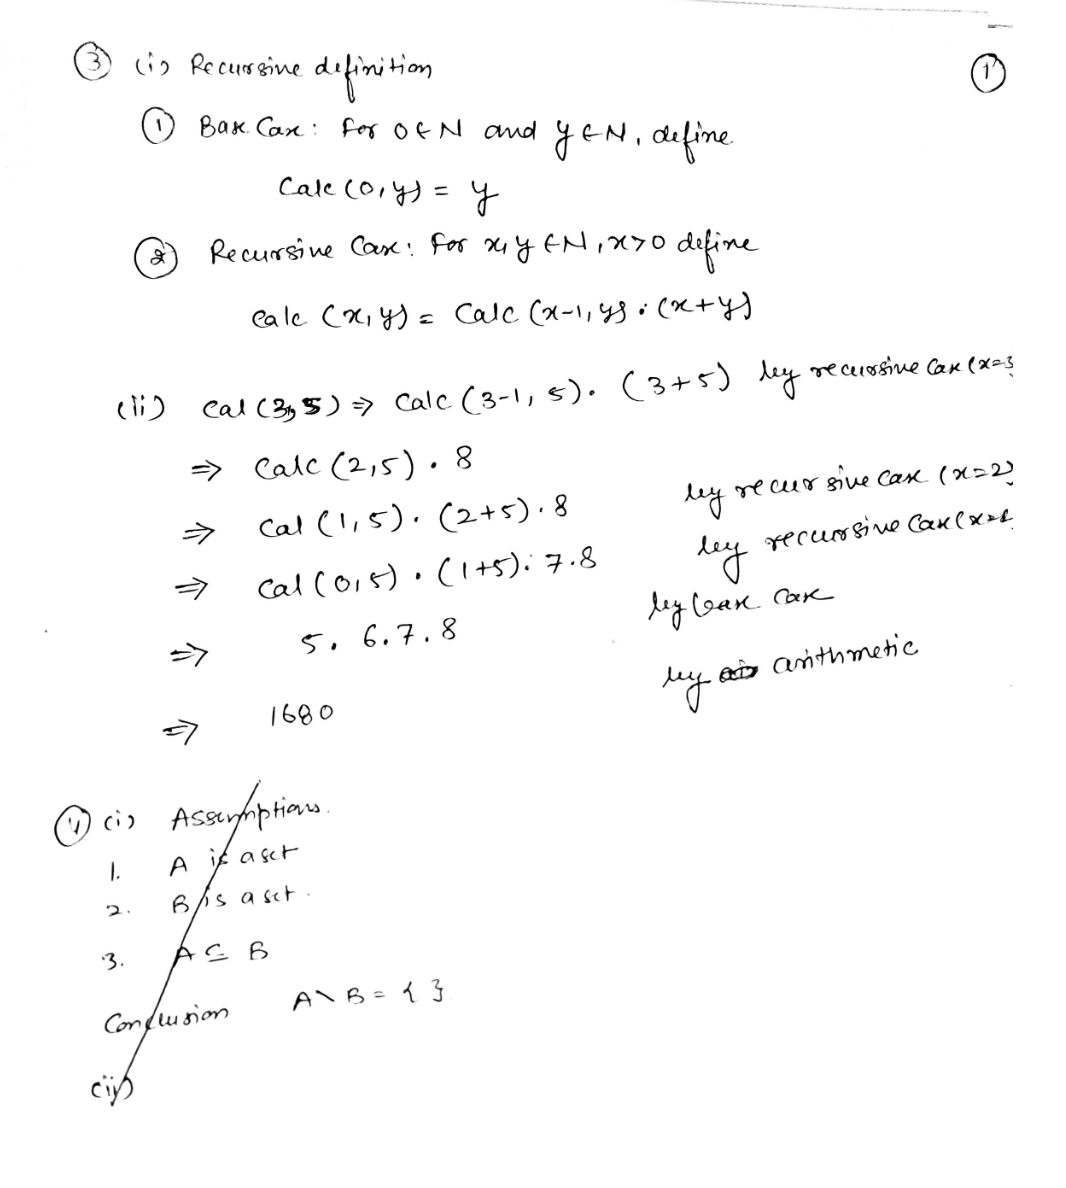 ③ (i) Recursive definition
①
① Base Case: For 0 ∈ N and y ∈ N, define
Calc (0, y) = y
② Recursive Case: For x, y ∈ N, x > 0 define
calc (x, y) = Calc (x-1, y) · (x+y)
(ii) Cal (3, 5) ⇒ Calc (3-1, 5) · (3+5) by recursive Case (x=3
⇒ Calc (2,5) · 8
⇒ Cal (1,5) · (2+5) · 8 by recursive Case (x=2)
⇒ Cal (0,5) · (1+5) · 7.8 by recursive Case (x=1
⇒ 5. 6.7.8 by base Case
⇒ 1680 by arithmetic
④ (i) Assumptions.
1. A is a set
2. B is a set.
3. A ⊆ B
Conclusion A \ B = { }
(ii)